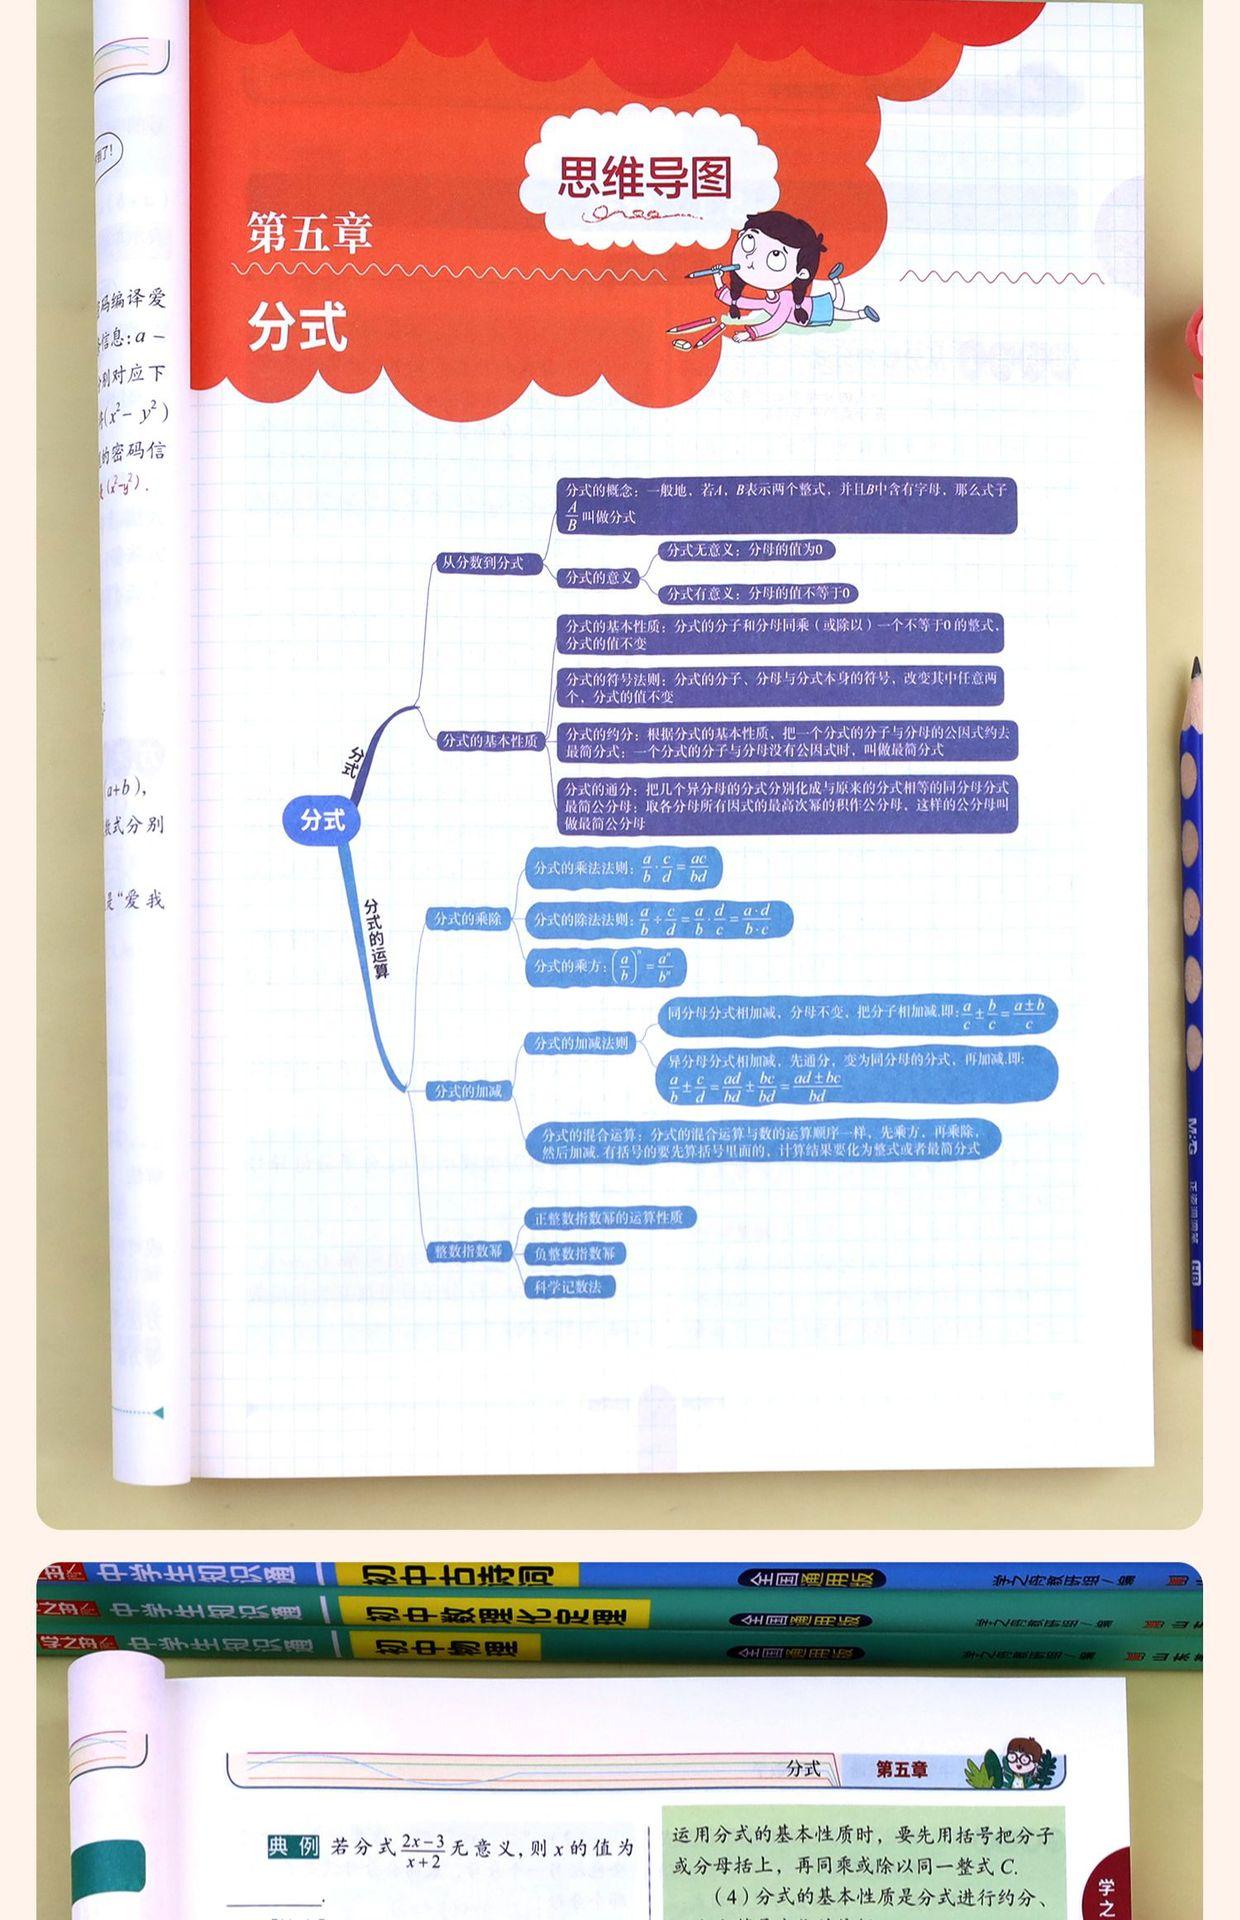 思维导图
第五章
分式
码编译爱
信息:a－
别对应下
(x²－y²)
的密码信
(x²－y²).
a+b),
数式分别
“爱我
分式的概念：一般地，若A，B表示两个整式，并且B中含有字母，那么式子
A/B 叫做分式
从分数到分式
分式无意义：分母的值为0
分式的意义
分式有意义：分母的值不等于0
分式的基本性质：分式的分子和分母同乘（或除以）一个不等于0的整式，
分式的值不变
分式的符号法则：分式的分子、分母与分式本身的符号，改变其中任意两
个，分式的值不变
分式的基本性质
分式的约分：根据分式的基本性质，把一个分式的分子与分母的公因式约去
最简分式：一个分式的分子与分母没有公因式时，叫做最简分式
分式的通分：把几个异分母的分式分别化成与原来的分式相等的同分母分式
最简公分母：取各分母所有因式的最高次幂的积作公分母，这样的公分母叫
做最简公分母
分式
分式
分式的运算
分式的乘法法则：a/b·c/d=ac/bd
分式的乘除
分式的除法法则：a/b÷c/d=a/b·d/c=a·d/b·c
分式的乘方：(a/b)ⁿ=aⁿ/bⁿ
同分母分式相加减，分母不变，把分子相加减.即：a/c±b/c=a±b/c
分式的加减法则
异分母分式相加减，先通分，变为同分母的分式，再加减.即：
a/b±c/d=ad/bd±bc/bd=ad±bc/bd
分式的加减
分式的混合运算：分式的混合运算与数的运算顺序一样，先乘方，再乘除，
然后加减.有括号的要先算括号里面的，计算结果要化为整式或者最简分式
正整数指数幂的运算性质
整数指数幂
负整数指数幂
科学记数法
M&G
HB
中学生知识通 初中古诗词 全国通用版 学之舟教研组/编
学之舟 中学生知识通 初中数理化定理 全国通用版 学之舟教研组/编 山东
学之舟 中学生知识通 初中物理 全国通用版 学之舟教研组/编 山东
分式 第五章
典例 若分式2x－3/x+2无意义,则x的值为
______.
运用分式的基本性质时，要先用括号把分子
或分母括上，再同乘或除以同一整式C.
（4）分式的基本性质是分式进行约分、
学之